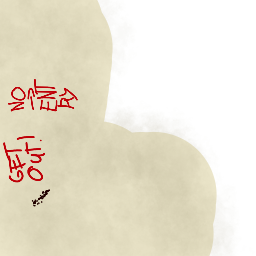 NO
ENT
RY
GET
OUT!